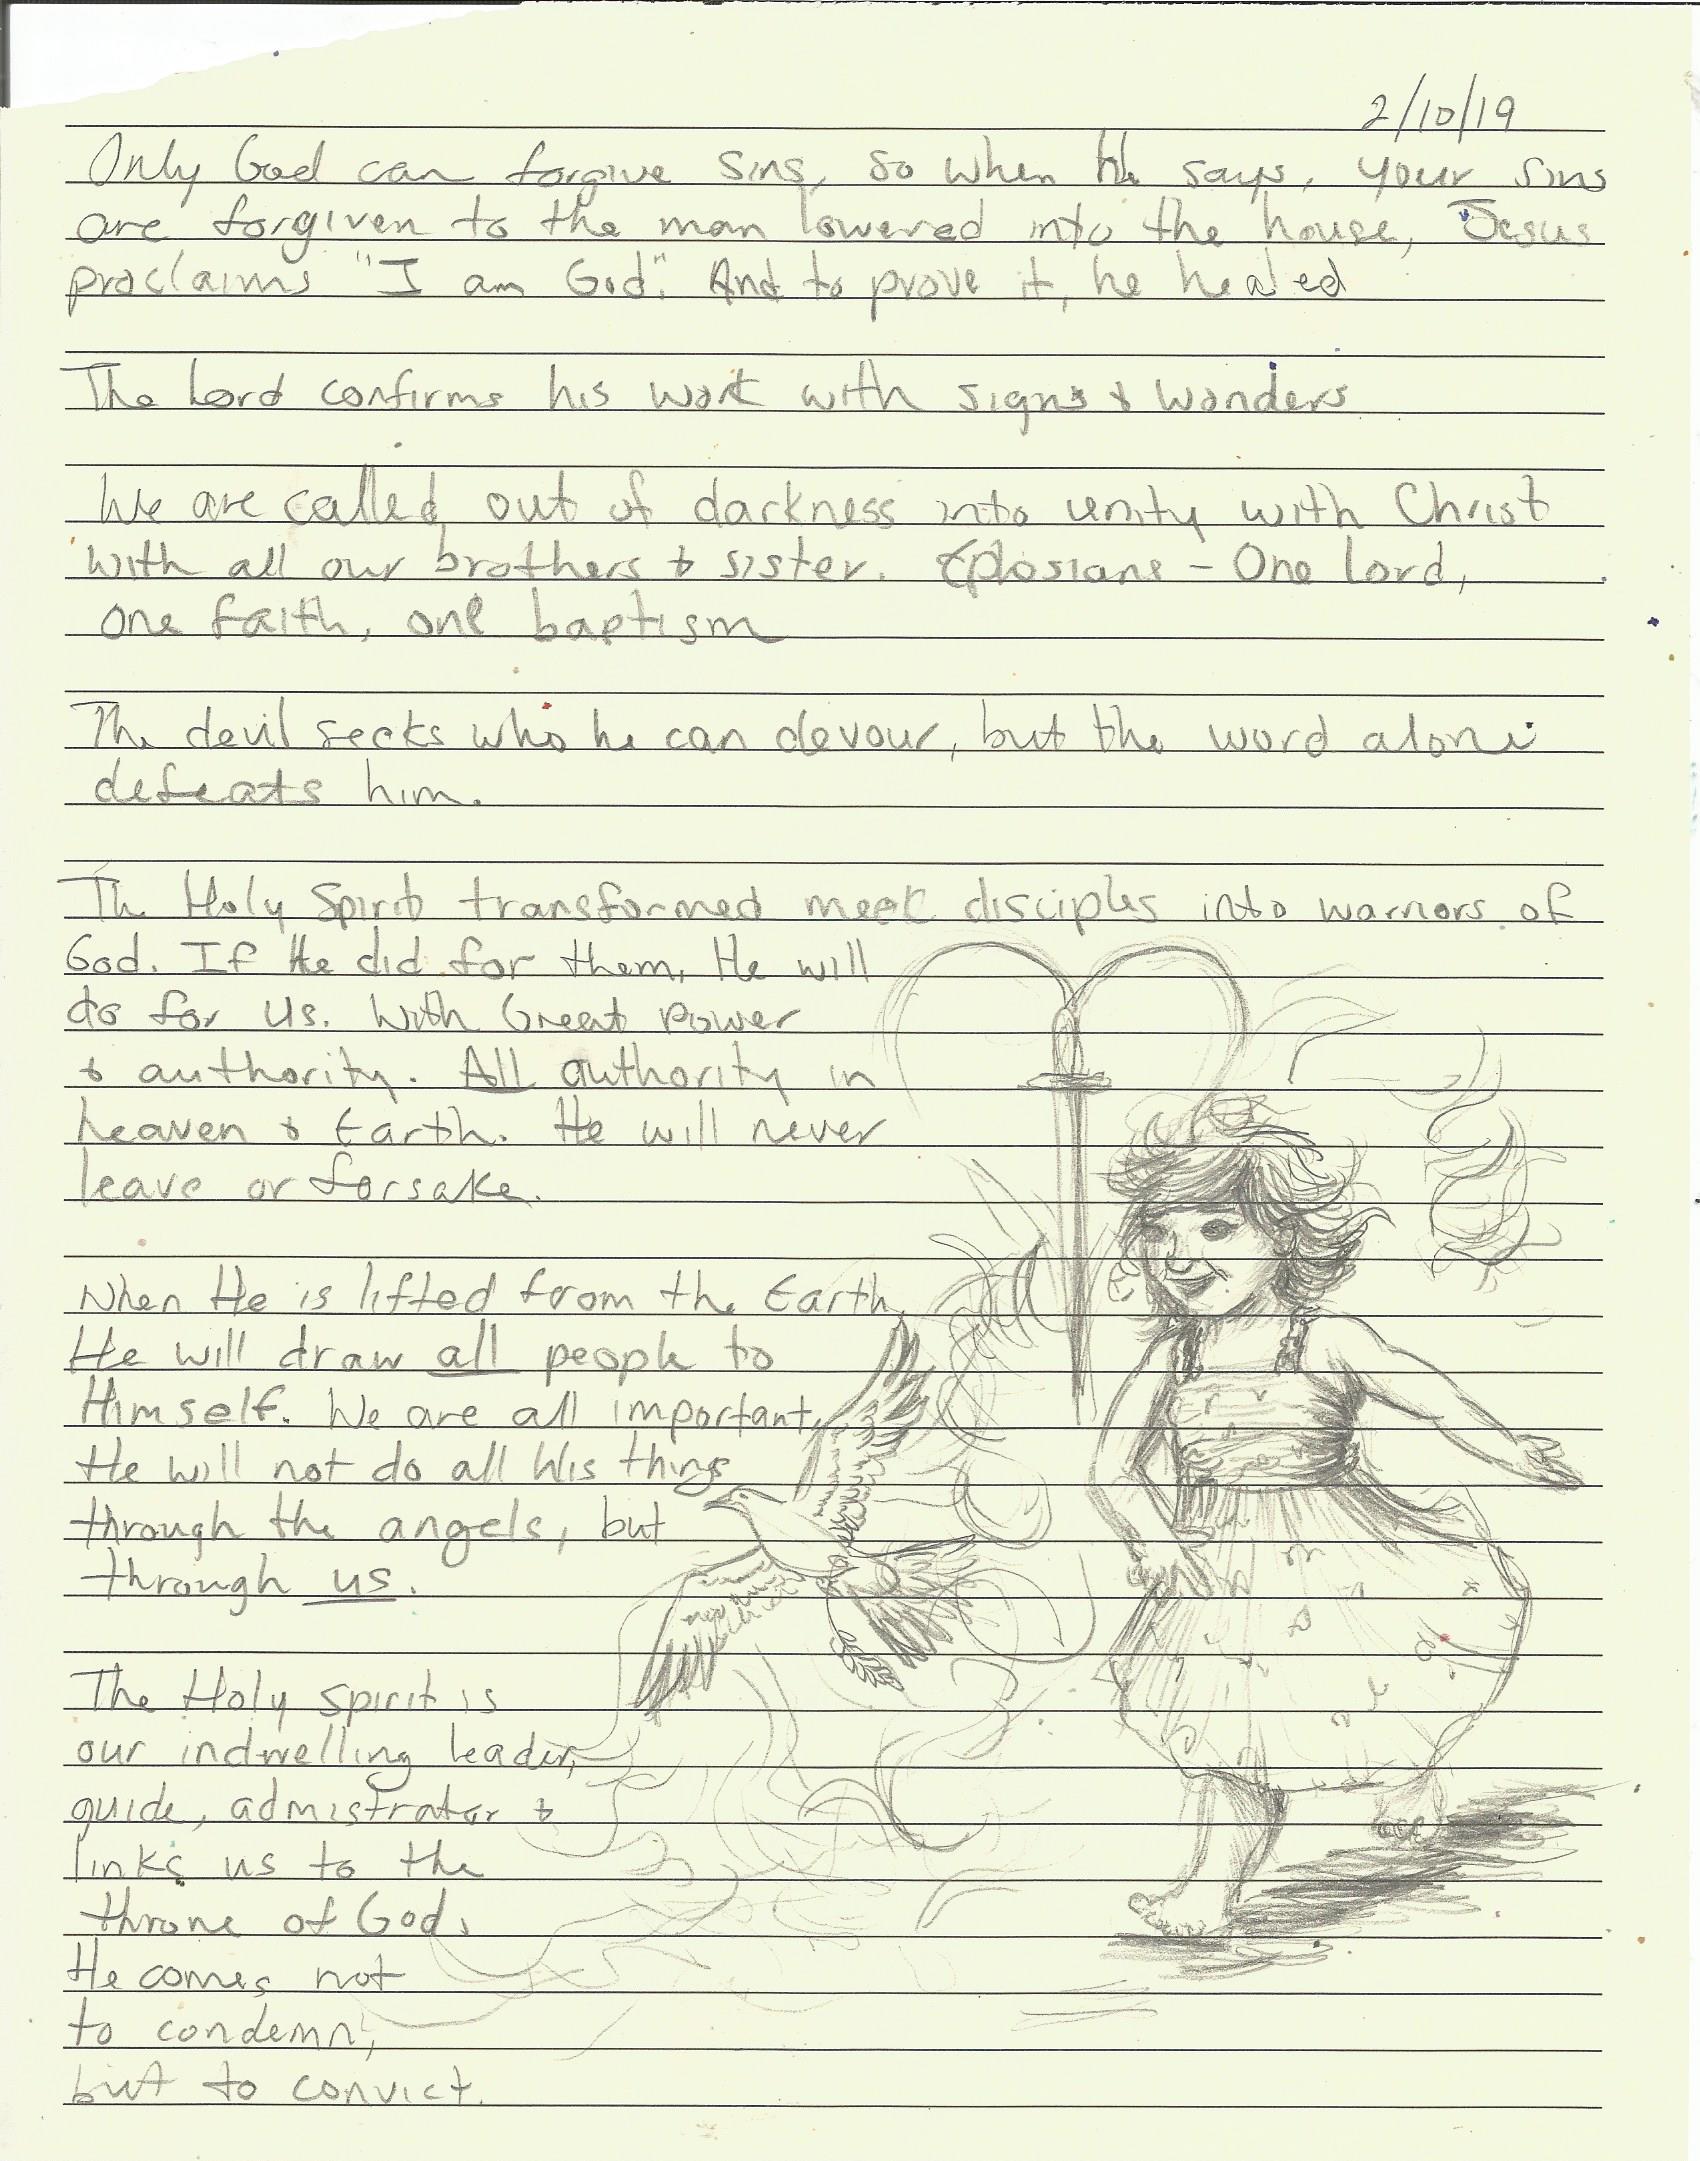 2/10/19
Only God can forgive sins, so when He says, your sins
are forgiven to the man lowered into the house, Jesus
proclaims "I am God". And to prove it, he healed
The Lord confirms his work with signs & wonders
We are called out of darkness into unity with Christ
with all our brothers & sister. Ephosians - One Lord,
one faith, one baptism
The devil seeks who he can devour, but the word alone
defeats him.
The Holy Spirit transformed meek disciples into warriors of
God. If He did for them, He will
do for us. With Great power
& authority. All authority in
heaven & Earth. He will never
leave or forsake.
When He is lifted from the Earth,
He will draw all people to
Himself. We are all important,
He will not do all His things
through the angels, but
through us.
The Holy spirit is
our indwelling leader,
guide, admistrator &
links us to the
throne of God.
He comes not
to condemn,
but to convict.